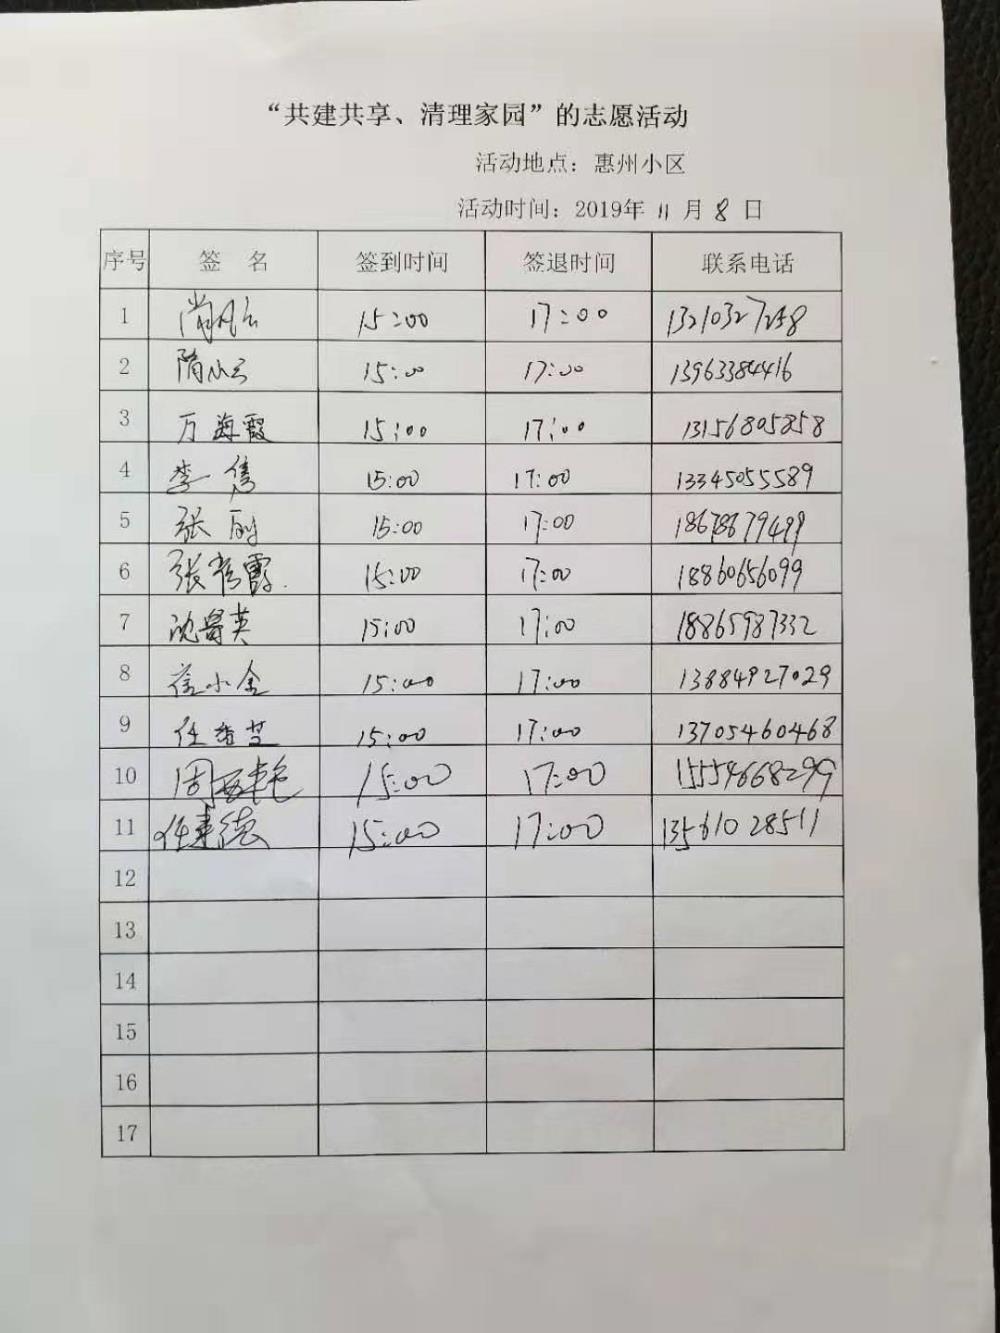 “共建共享、清理家园”的志愿活动
活动地点：惠州小区
活动时间：2019年 11 月 8 日
序号 签 名 签到时间 签退时间 联系电话
1 15:00 17:00 13210327258
2 隋小云 15:00 17:00 13963384416
3 万海霞 15:00 17:00 13156805858
4 李隽 15:00 17:00 13345055589
5 张 15:00 17:00 18678679499
6 张彦霞 15:00 17:00 18860656099
7 沈曼英 15:00 17:00 18865987332
8 小金 15:00 17:00 13884927029
9 任 15:00 17:00 13705460468
10 周 15:00 17:00 15554668299
11 任建德 15:00 17:00 13561028511
12
13
14
15
16
17